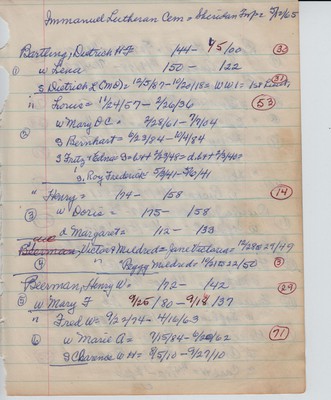 Immanuel Lutheran Cem = Sheridan Twp = 5/10/65
Bartling, Dietrich H.F. 144 - 45/00 3
(1) w Lena 150 - 122
s Dietrich L (Md) = 10/5/87 - 10/20/18 = WW1 = 1st Lieut. 31
" Louis = 11/24/57 - 2/26/36 53
w Mary D C = 2/28/61 - 7/7/04
(2) s Bernhart = 2/23/84 - 10/4/84
s Fritz & Edna
s. Roy Frederick 5/3/41 - 5/6/41
" Henry = 174 - 158 14
(3) w Dorie = 175 - 158
d Margaret = 112 - 133
Beerman, Victor & Mildred = Jane Victoria =
(4) " Peggy Mildred = 3
Beerman, Henry W. = 172 - 142 29
(5) w Mary F 9/25/80 - 9/18/37
" Fred W = 9/22/74 - 4/16/63
(6) w Marie A = 7/15/84 - 6/20/62 71
s Clarence W H = 9/5/10 - 9/27/10